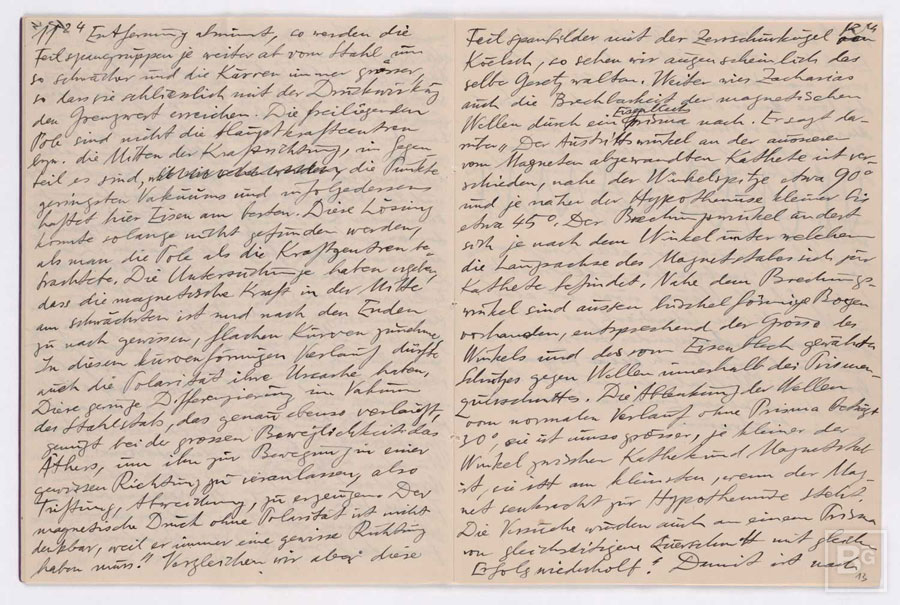 1124 Entfernung abnimmt, so werden die
Feilspangruppen je weiter ab vom Stahl um
so schwächer und die Kurven immer grösser,
so dass sie schliesslich mit der Druckwirkung
den Grenzwert erreichen. Die freiliegenden
Pole sind nicht die Hauptkraftcentren
bzw. die Mitten der Kraftrichtung, im Gegen
teil es sind, die Punkte
geringsten Vakuums und infolgedessen
haftet hier Eisen am besten. Diese Lösung
konnte solange nicht gefunden werden,
als man die Pole als die Kraftzentren be-
trachtete. Die Untersuchungen haben ergeben,
dass die magnetische Kraft in der Mitte
am schwächsten ist und nach den Enden
zu nach gewissen, flachen Kurven zunehme.
In diesem kurvenförmigen Verlauf dürfte
auch die Polarität ihre Ursache haben.
Diese geringe Differenzierung im Vakuum
des Stahlstabs, das genau ebenso verläuft,
genügt bei der grossen Beweglichkeit des
Äthers, um ihn zur Bewegung in einer
gewissen Richtung zu veranlassen, also
Triftung, Abweichung, zu erzeugen. Der
magnetische Druck ohne Polarität ist nicht
denkbar, weil er immer eine gewisse Richtung
haben muss." Vergleichen wir also diese
Feilspanbilder mit der Zerrschurkugel von
so sehen wir augenscheinlich das
selbe Gesetz walten. Weiter wies Zacharias
auch die Brechbarkeit der magnetischen
Eisenblech
Wellen durch ein Prisma nach. Er sagt da-
rüber „Der Austrittswinkel an der äusseren
vom Magneten abgewandten Kathete ist ver-
schieden, nahe der Winkelspitze etwa 90°
und je näher der Hypothenuse kleiner bis
etwa 45°. Der Brechungswinkel ändert
sich je nach dem Winkel unter welchem
die Längsachse des Magnetstabes sich zur
Kathete befindet. Nahe dem Brechungs-
winkel sind aussen büschelförmige Bogen
vorhanden, entsprechend der Grösse des
Winkels und des vom Eisenblech gewährten
Schutzes gegen Wellen innerhalb des Prismen-
querschnittes. Die Ablenkung der Wellen
vom normalen Verlauf ohne Prisma beträgt
30° sie ist umso grösser, je kleiner der
Winkel zwischen Kathete und Magnetstab
ist, sie ist am kleinsten, wenn der Mag-
net senkrecht zur Hypothenuse steht.
Die Versuche wurden auch an einem Prisma
von gleichseitigem Querschnitt mit gleichem
Erfolg wiederholt." Damit ist nach
13
BG